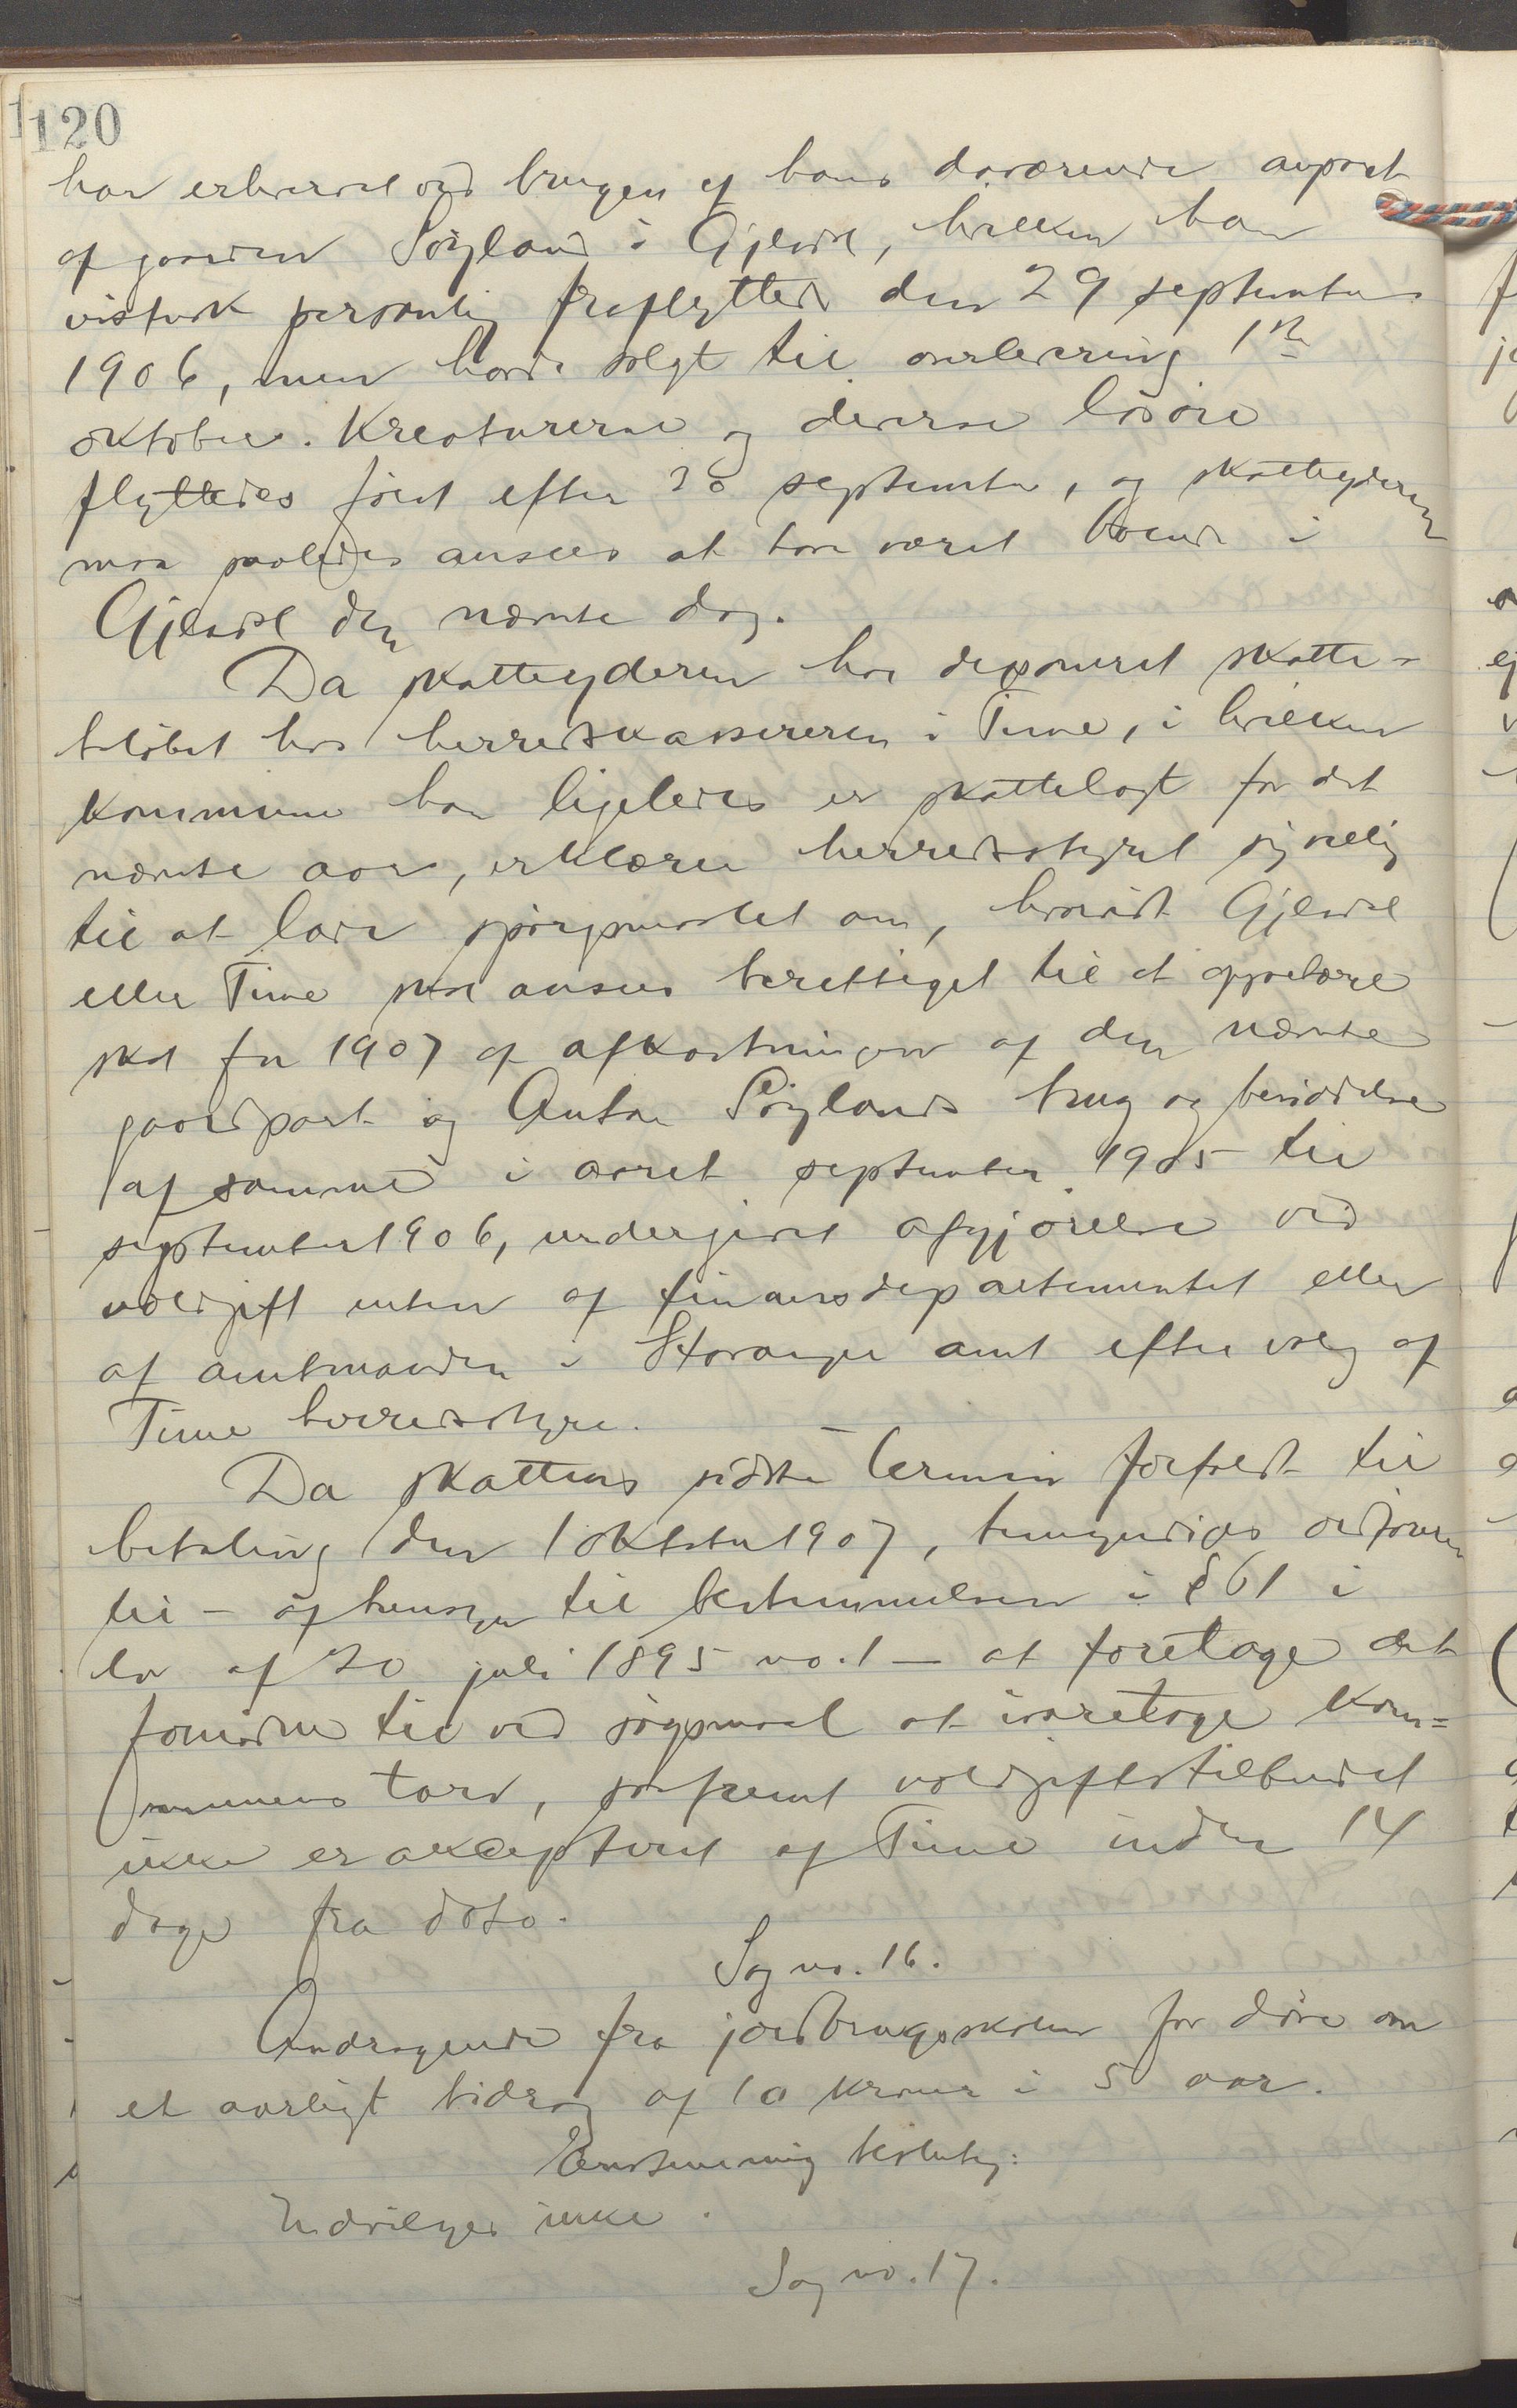 120
har erhvervet ved brugen af hans daværende anpart
af gaarden Söyland i Gjesdal, hvilken han
vistnok personlig fraflyttede den 29 september
1906, men havde solgt til overlevering 1ste
oktober. Kreaturerne og diverse lösöre
flyttedes först efter 30 september, og skatteyderen
maa saaledes ansees at have været boende i
Gjesdal den nævnte dag.
Da skatteyderen har deponeret skatte-
belöbet hos herredskassereren i Time, i hvilken
kommune han ligeledes er skattelagt for det
nævnte aar, erklærer herredsstyret sig villig
til at lade spörgsmaalet om, hvorvidt Gjesdal
eller Time skal ansees berettiget til at oppebære
skat for 1907 af afkastningen af den nævnte
gaardpart og Anton Söylands brug og besiddelse
af samme i aaret september 1905 til
september 1906, undergivet afgjörelse ved
voldgift enten af finansdepartementet eller
af amtmanden i Stavanger amt efter valg af
Time herredsstyre.
Da skattens sidste termin forfaldt til
betaling den 1 oktober 1907, bemyndiges ordföreren
til - af hensyn til bestemmelsen i § 61 i
lov af 20 juli 1895 no. 1 - at foretage det
fornödne til ved sögsmaal at ivaretage kom=
munens tarv, saafremt voldgiftstilbudet
ikke er akcepteret af Time inden 14
dage fra dato.
Sag no. 16.
Andragende fra jordbrugsskolen for döve om
et aarligt bidrag af 10 kroner i 5 aar.
Enstemmig beslutng:
Indvilges ikke.
Sag no. 17.